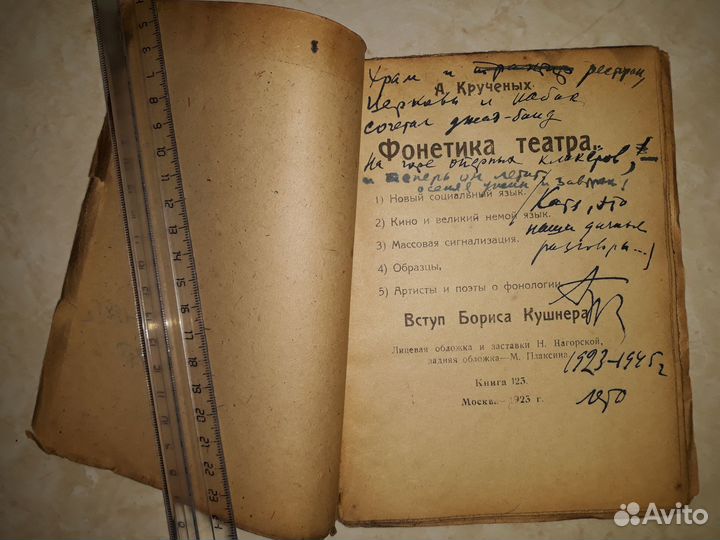 Храм и ресторан,
А. Крученых.
Церковь и кабак
сочетал джаз-банд
Фонетика театра.
На горе оперных клакеров,
и теперь он летит,
1) Новый социальный язык.
Катя, это
2) Кино и великий немой язык.
наши дачные
3) Массовая сигнализация.
разговоры...)
4) Образцы.
5) Артисты и поэты о фонологии.
Вступ Бориса Кушнера
Лицевая обложка и заставки Н. Нагорской,
задняя обложка—М. Плаксина
1923-1945 г
Книга 123.
лето
Москва—1923 г.
Avito